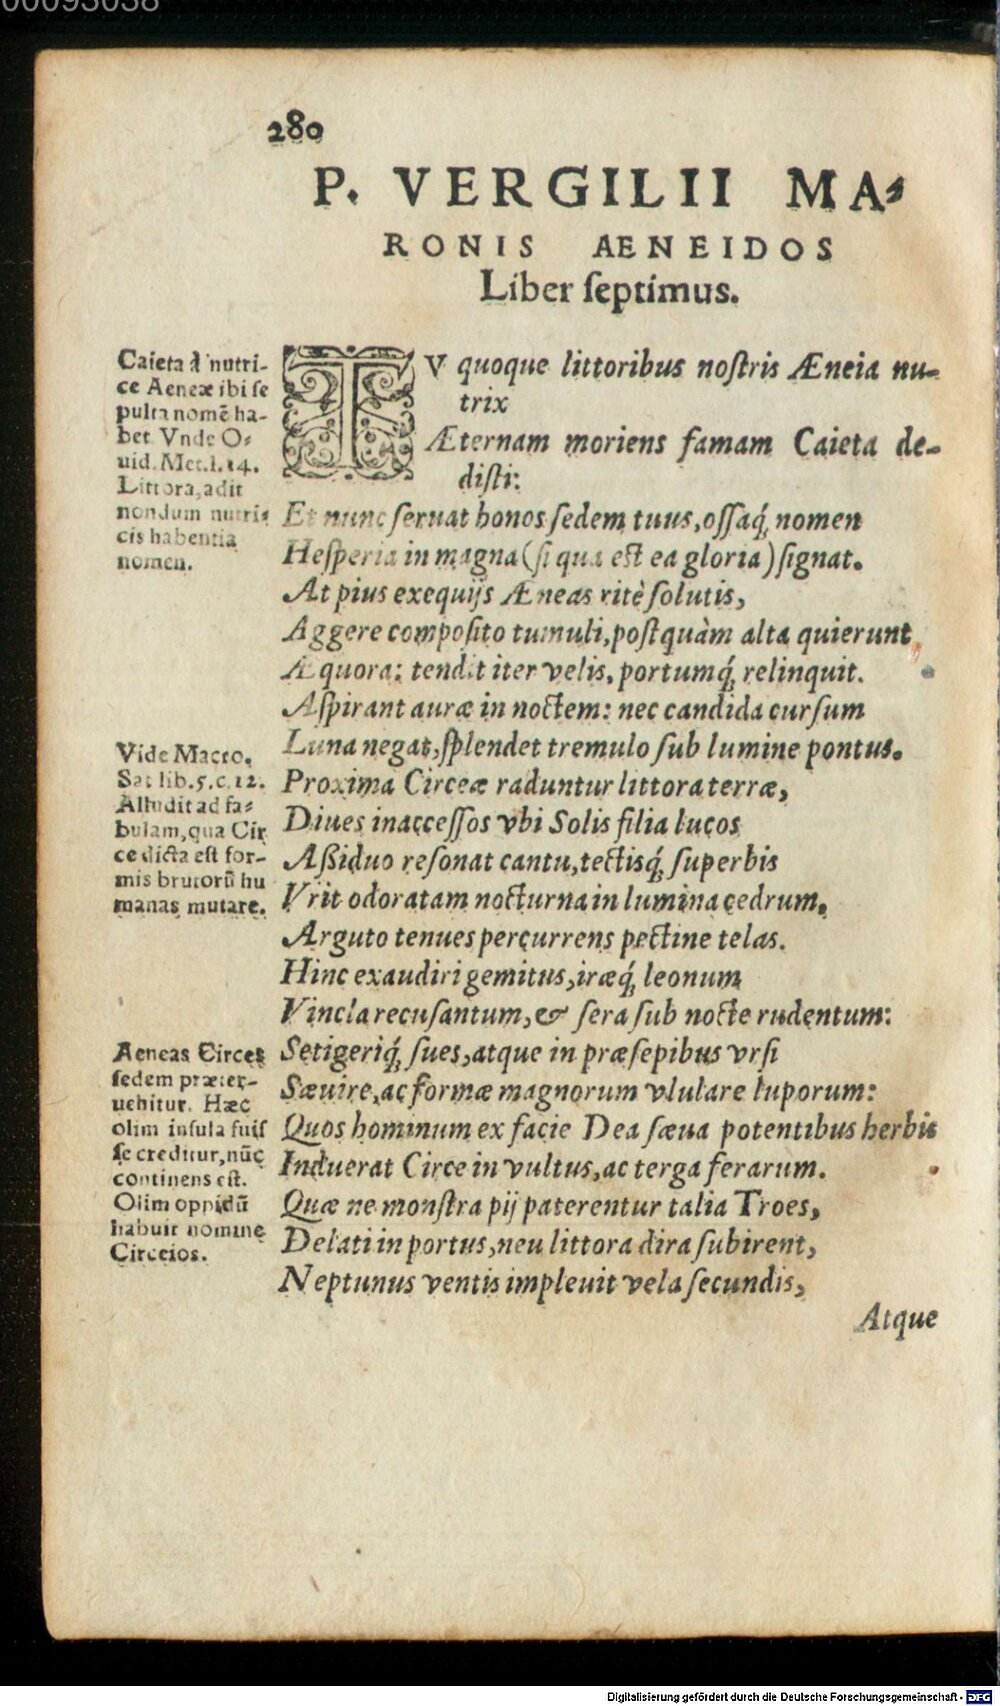 00093038
280
P. VERGILII MA-
RONIS AENEIDOS
Liber ſeptimus.
TV quoque littoribus noſtris Æneia nu-
trix
Æternam moriens famam Caieta de-
diſti:
Et nunc ſeruat honos ſedem tuus, oſſaq́; nomen
Heſperia in magna (ſi qua eſt ea gloria) ſignat.
At pius exequijs Æneas ritè ſolutis,
Aggere compoſito tumuli, poſtquàm alta quierunt
Æquora: tendit iter velis, portumq́; relinquit.
Aſpirant auræ in noctem: nec candida curſum
Luna negat, ſplendet tremulo ſub lumine pontus.
Proxima Circeæ raduntur littora terræ,
Diues inacceſſos vbi Solis filia lucos
Aßiduo reſonat cantu, tectisq́; ſuperbis
Vrit odoratam nocturna in lumina cedrum.
Arguto tenues percurrens pectine telas.
Hinc exaudiri gemitus, iræq́; leonum
Vincla recuſantum, & ſera ſub nocte rudentum:
Setigeriq́; ſues, atque in præſepibus vrſi
Sæuire, ac formæ magnorum vlulare luporum:
Quos hominum ex facie Dea ſæua potentibus herbis
Induerat Circe in vultus, ac terga ferarum.
Quæ ne monſtra pij paterentur talia Troes,
Delati in portus, neu littora dira ſubirent,
Neptunus ventis impleuit vela ſecundis,
Atque
Caieta à nutri-
ce Aeneæ ibi ſe
pulta nomē ha-
bet. Vnde O-
uid. Met. l. 14.
Littora, adit
nondum nutri-
cis habentia
nomen.
Vide Macro.
Sat lib. 5. c. 12.
Alludit ad fa-
bulam, qua Cir
ce dicta eſt for-
mis brutorū hu
manas mutare.
Aeneas Circes
ſedem præter-
uehitur. Hæc
olim inſula fuiſ
ſe creditur, nūc
continens eſt.
Olim oppidū
habuit nomine
Circeios.
Digitalisierung gefördert durch die Deutsche Forschungsgemeinschaft - DFG